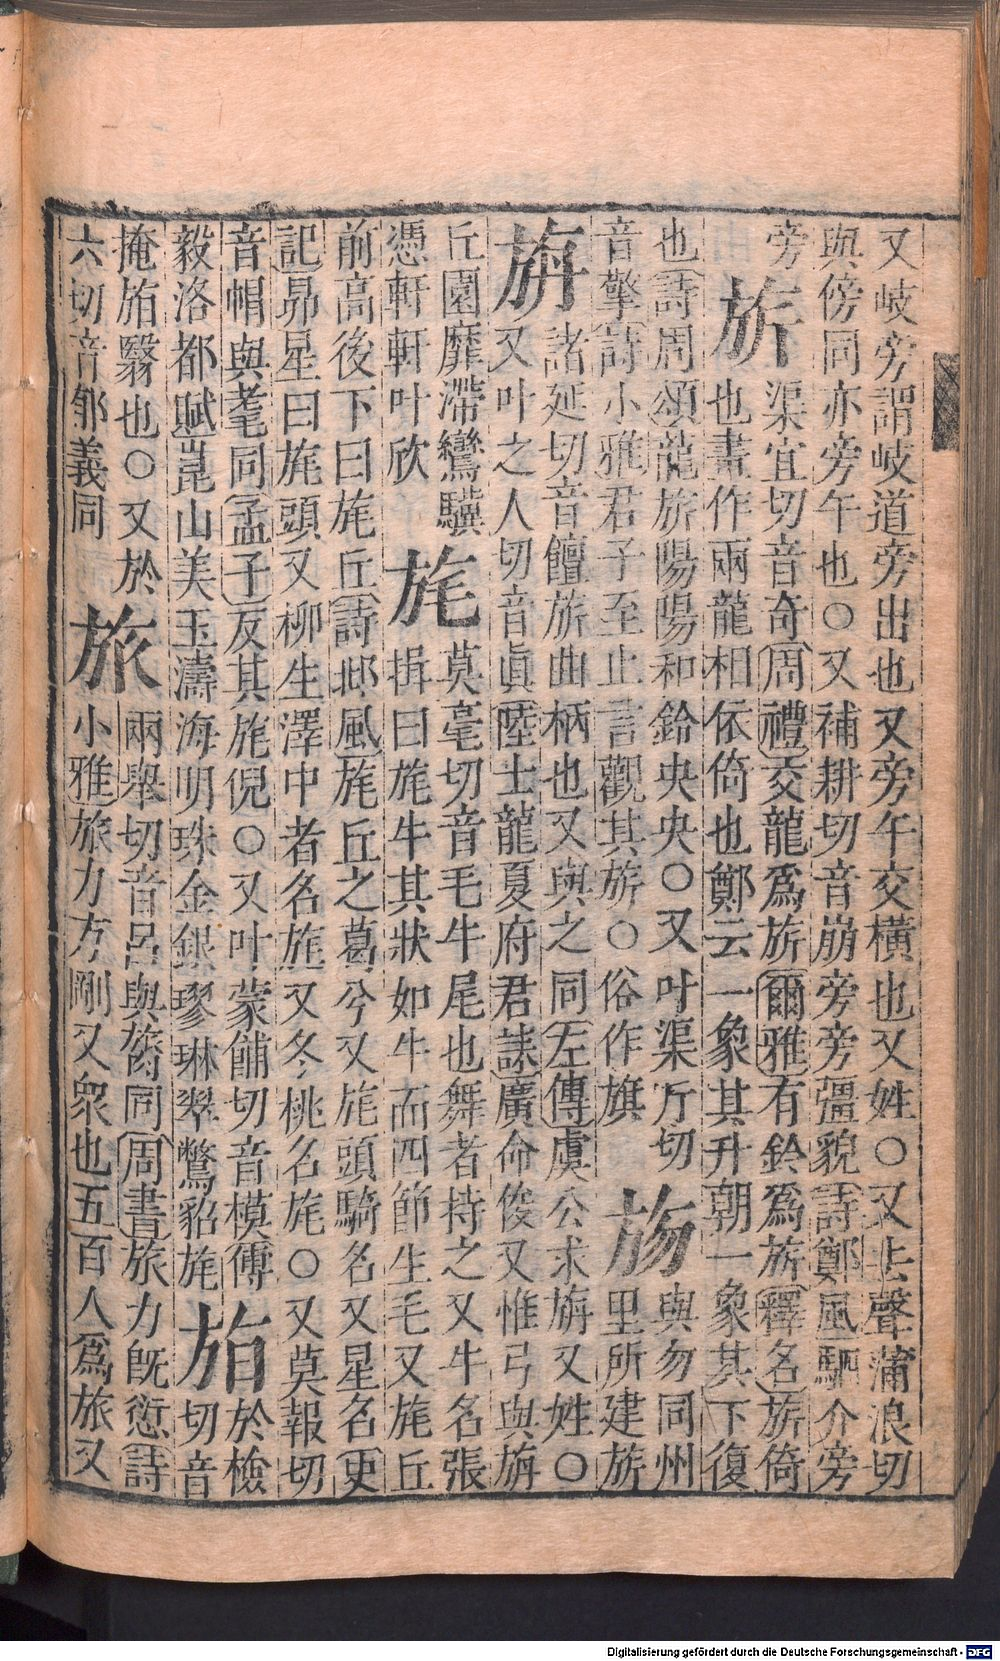 又岐旁謂岐道旁出也又旁午交橫也又姓○又去聲蒲浪切
與傍同亦旁午也○又補耕切音崩旁旁彊貌詩鄭風駟介旁
旁旂渠宜切音奇周禮交龍爲旂爾雅有鈴爲旂釋名旂倚
也畫作兩龍相依倚也鄭云一象其升朝一象其下復
也詩周頌龍旂陽陽和鈴央央○又叶渠斤切
音擎詩小雅君子至止言觀其旂○俗作旗
㫃與勿同州
里所建旂
旃諸延切音饘旂曲柄也又與之同左傳虞公求旃又姓○
又叶之人切音眞陸士龍夏府君誄廣命俊乂惟弓與旃
丘園靡滯鸞驥
旄莫毫切音毛牛尾也舞者持之又牛名張
憑軒軒叶欣
揖曰旄牛其狀如牛而四節生毛又旄丘
前高後下曰旄丘詩邶風旄丘之葛兮又旄頭騎名又星名史
記昴星曰旄頭又柳生澤中者名旄又冬桃名旄○又莫報切
音帽與耄同孟子反其旄倪○又叶蒙餔切音模傅
毅洛都賦崑山美玉濤海明珠金銀璆琳翠鷩貂旄
㫋於檢
切音
掩㫋翳也○又於
六切音郁義同
旅兩舉切音呂與膂同周書旅力旣愆詩
小雅旅力方剛又衆也五百人爲旅又
Digitalisierung gefördert durch die Deutsche Forschungsgemeinschaft - DFG